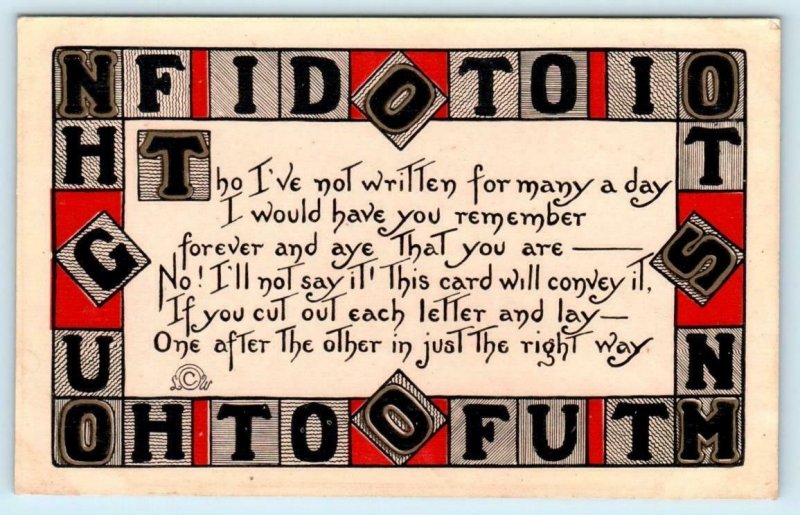 N F I D O T O I O
H T
G S
U N
O H T O O F U T M
Tho I've not written for many a day
I would have you remember
forever and aye That you are ———
No! I'll not say it! This card will convey it,
If you cut out each letter and lay—
One after the other in just the right way
©